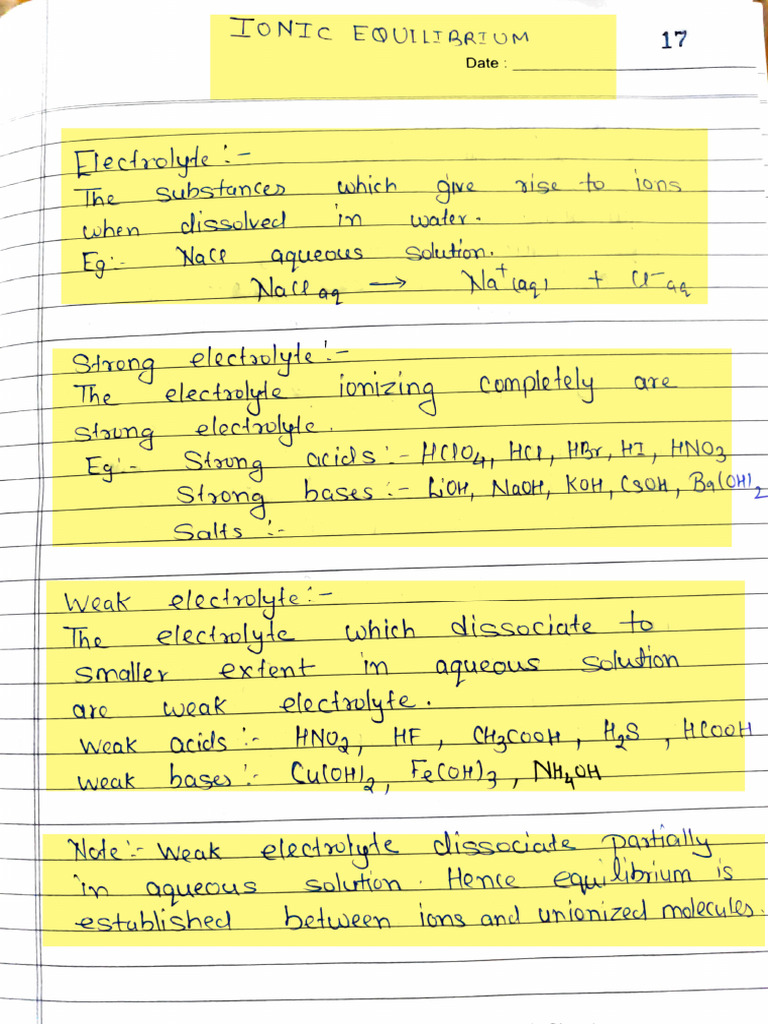 IONIC EQUILIBRIUM
17
Date :
Electrolyte :-
The substances which give rise to ions
when dissolved in water.
Eg:- NaCl aqueous solution.
NaCl aq → Na⁺(aq) + Cl⁻aq
Strong electrolyte :-
The electrolyte ionizing completely are
strong electrolyte.
Eg:- Strong acids :- HClO4, HCl, HBr, HI, HNO3
Strong bases :- LiOH, NaOH, KOH, CsOH, Ba(OH)2
Salts :-
Weak electrolyte :-
The electrolyte which dissociate to
smaller extent in aqueous solution
are weak electrolyte.
Weak acids :- HNO2, HF, CH3COOH, H2S, HCOOH
Weak bases :- Cu(OH)2, Fe(OH)3, NH4OH
Note :- Weak electrolyte dissociate partially
in aqueous solution. Hence equilibrium is
established between ions and unionized molecules.